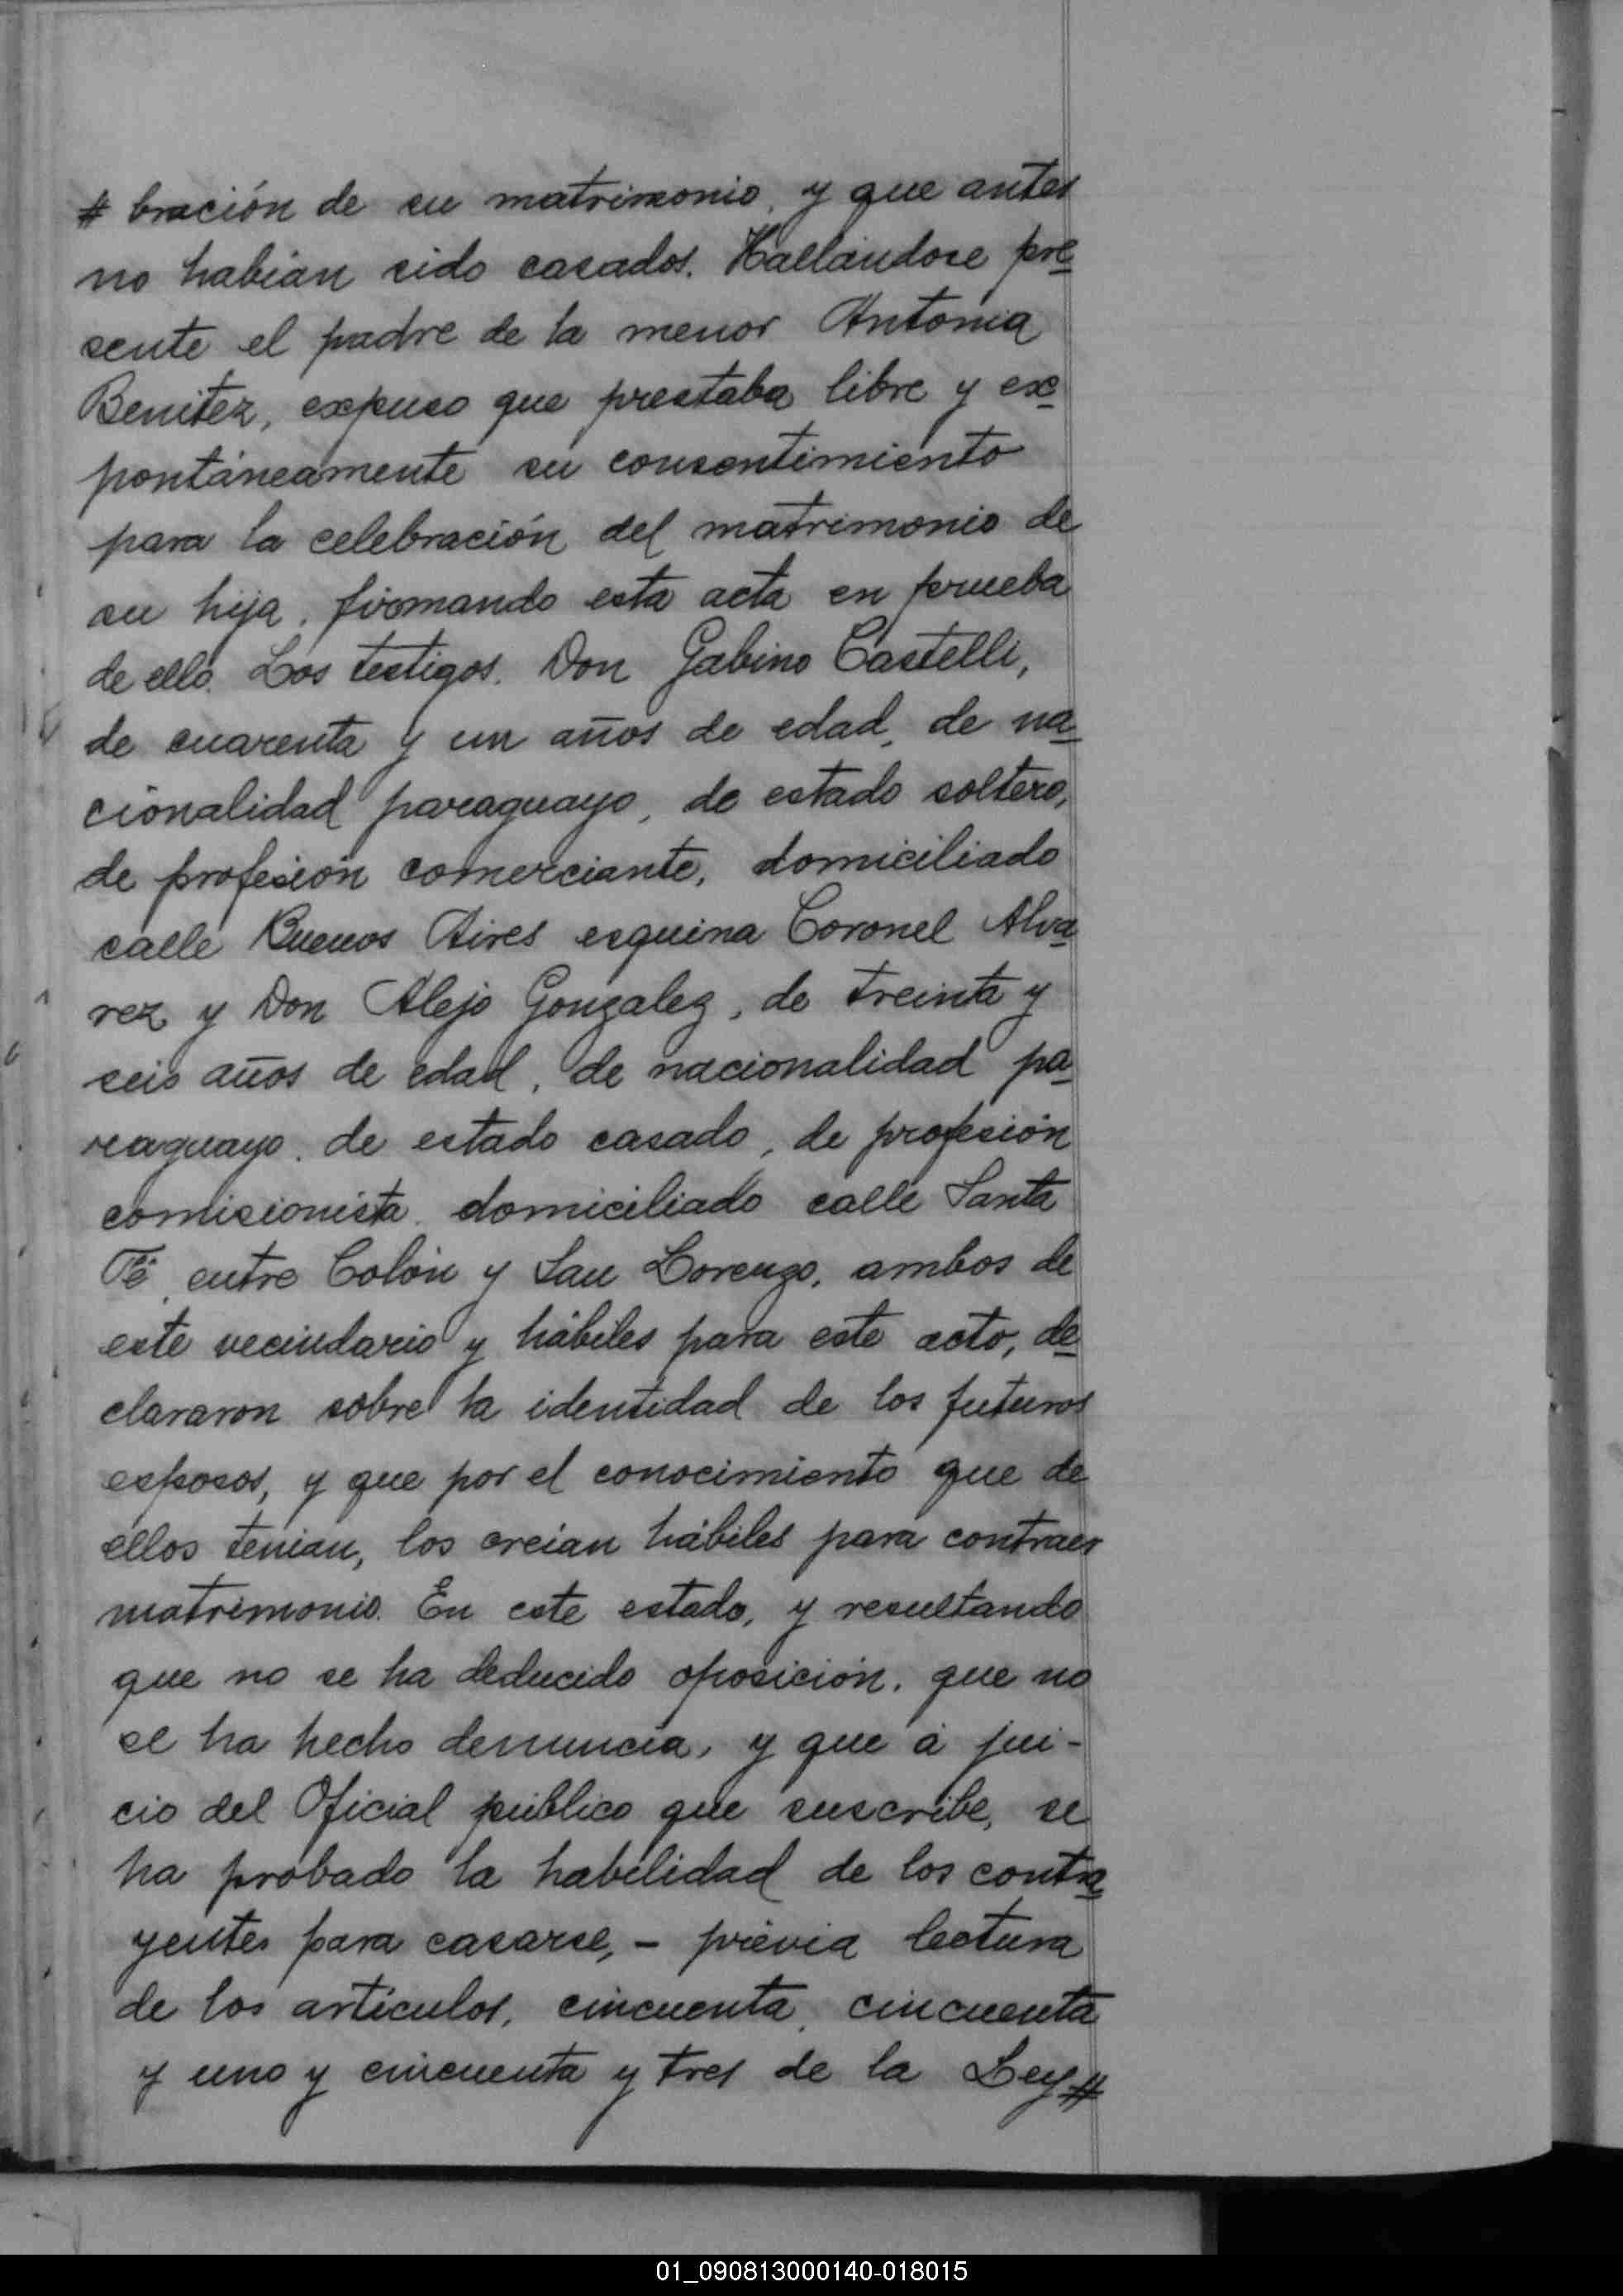 # bración de su matrimonio, y que antes
no habían sido casados. Hallándose pre-
sente el padre de la menor Antonia
Benitez, expuso que prestaba libre y ex-
pontáneamente su consentimiento
para la celebración del matrimonio de
su hija, firmando esta acta en prueba
de ello. Los testigos. Don Gabino Castelli,
de cuarenta y un años de edad, de na-
cionalidad paraguayo, de estado soltero,
de profesión comerciante, domiciliado
calle Buenos Aires esquina Coronel Alva-
rez y Don Alejo Gonzalez, de treinta y
seis años de edad, de nacionalidad pa-
raguayo, de estado casado, de profesión
comisionista, domiciliado calle Santa
Fé, entre Colón y San Lorenzo, ambos de
este vecindario y hábiles para este acto, de-
clararon sobre la identidad de los futuros
esposos, y que por el conocimiento que de
ellos tenian, los creían hábiles para contraer
matrimonio. En este estado, y resultando
que no se ha deducido oposición, que no
se ha hecho denuncia, y que á jui-
cio del Oficial público que suscribe, se
ha probado la habilidad de los contra-
yentes para casarse, - prévia lectura
de los artículos, cincuenta, cincuenta
y uno y cincuenta y tres de la Ley #
01_090813000140-018015